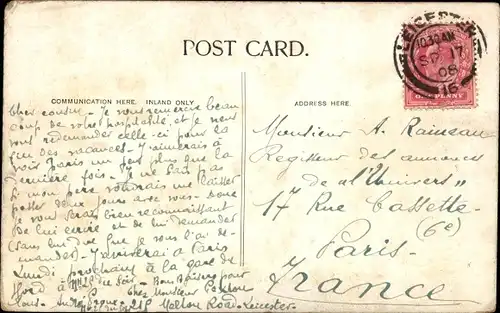 POST CARD.
LEICESTER
10.30 AM
SP 17
08
ONE PENNY
COMMUNICATION HERE. INLAND ONLY
ADDRESS HERE.
Cher cousin - Je vous remercie beau
coup de votre hospitalité, et je veux
vous redemander celle-ci pour la
fin des vacances. J'aimerais à
voir Paris un peu plus que la
dernière fois - Je ne sais pas
si mon père voudrais me laisser
passer deux jours avec vous - Donc
je vous serais bien reconnaissant
de lui écrire et de lui demander
(sans lui dire que je vous l'ai de-
mandé) - J'arriverai à Paris
Lundi prochain à la gare du
Nord à du soir - Bons baisers pour
tous - André chez Monsieur
Melton Road - Leicester -
Monsieur A. Raimeau
Régisseur des annonces
de "l'Univers"
17 Rue Cassette -
(6e)
Paris -
France